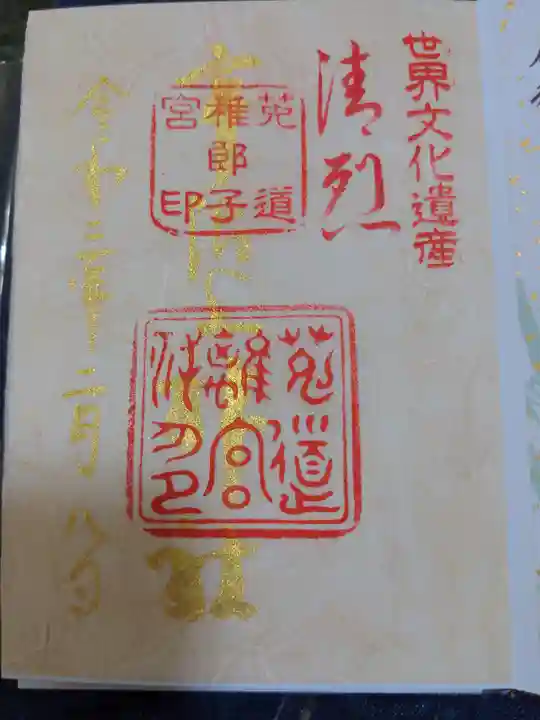 世界文化遺産
清烈
菟道
稚郎子
宮印
宇治上神社
菟道
離宮
令和三年二月八日